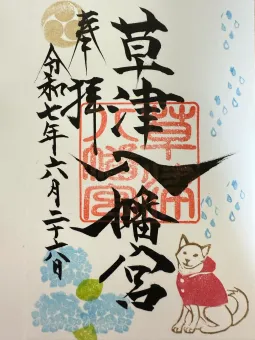 草津八幡宮
奉拝
令和七年六月二十六日
草津八幡宮